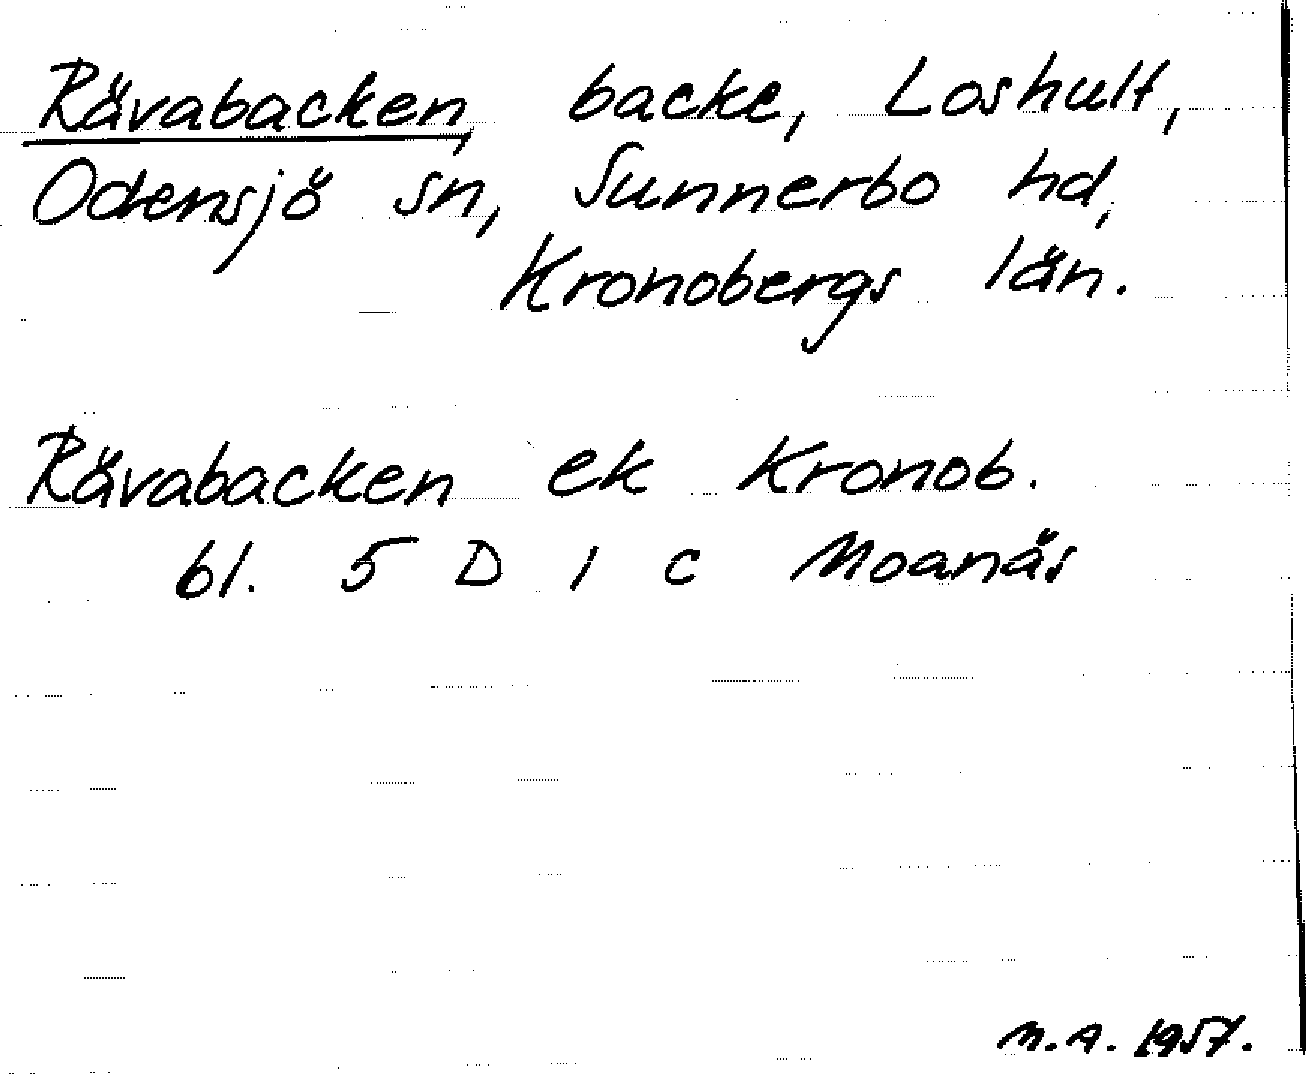 Rävabacken, backe, Loshult,
Odensjö sn, Sunnerbo hd,
Kronobergs län.
Rävabacken ek Kronob.
bl. 5 D 1 c Moanäs
M.A. 1957.